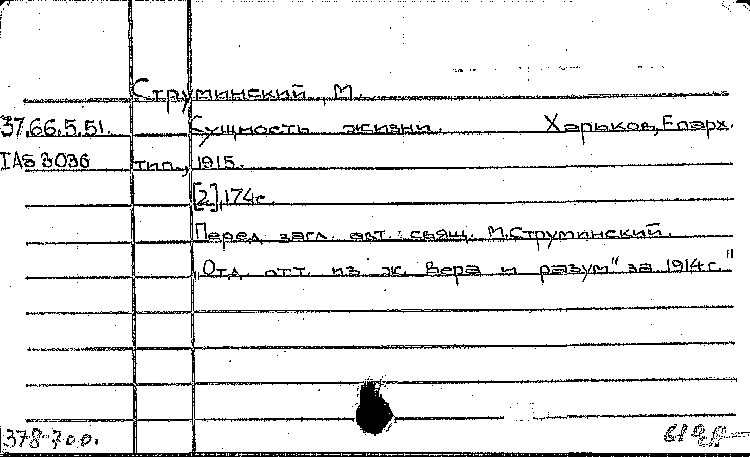 Струминский, М.
37.66.5.51. Сущность жизни. Харьков, Епарх.
IAs 3036 тип., 1915.
[2],174с.
Перед загл. авт.: свящ. М.Струминский.
"Отд. отт. из ж. Вера и разум" за 1914 г."
378-700.